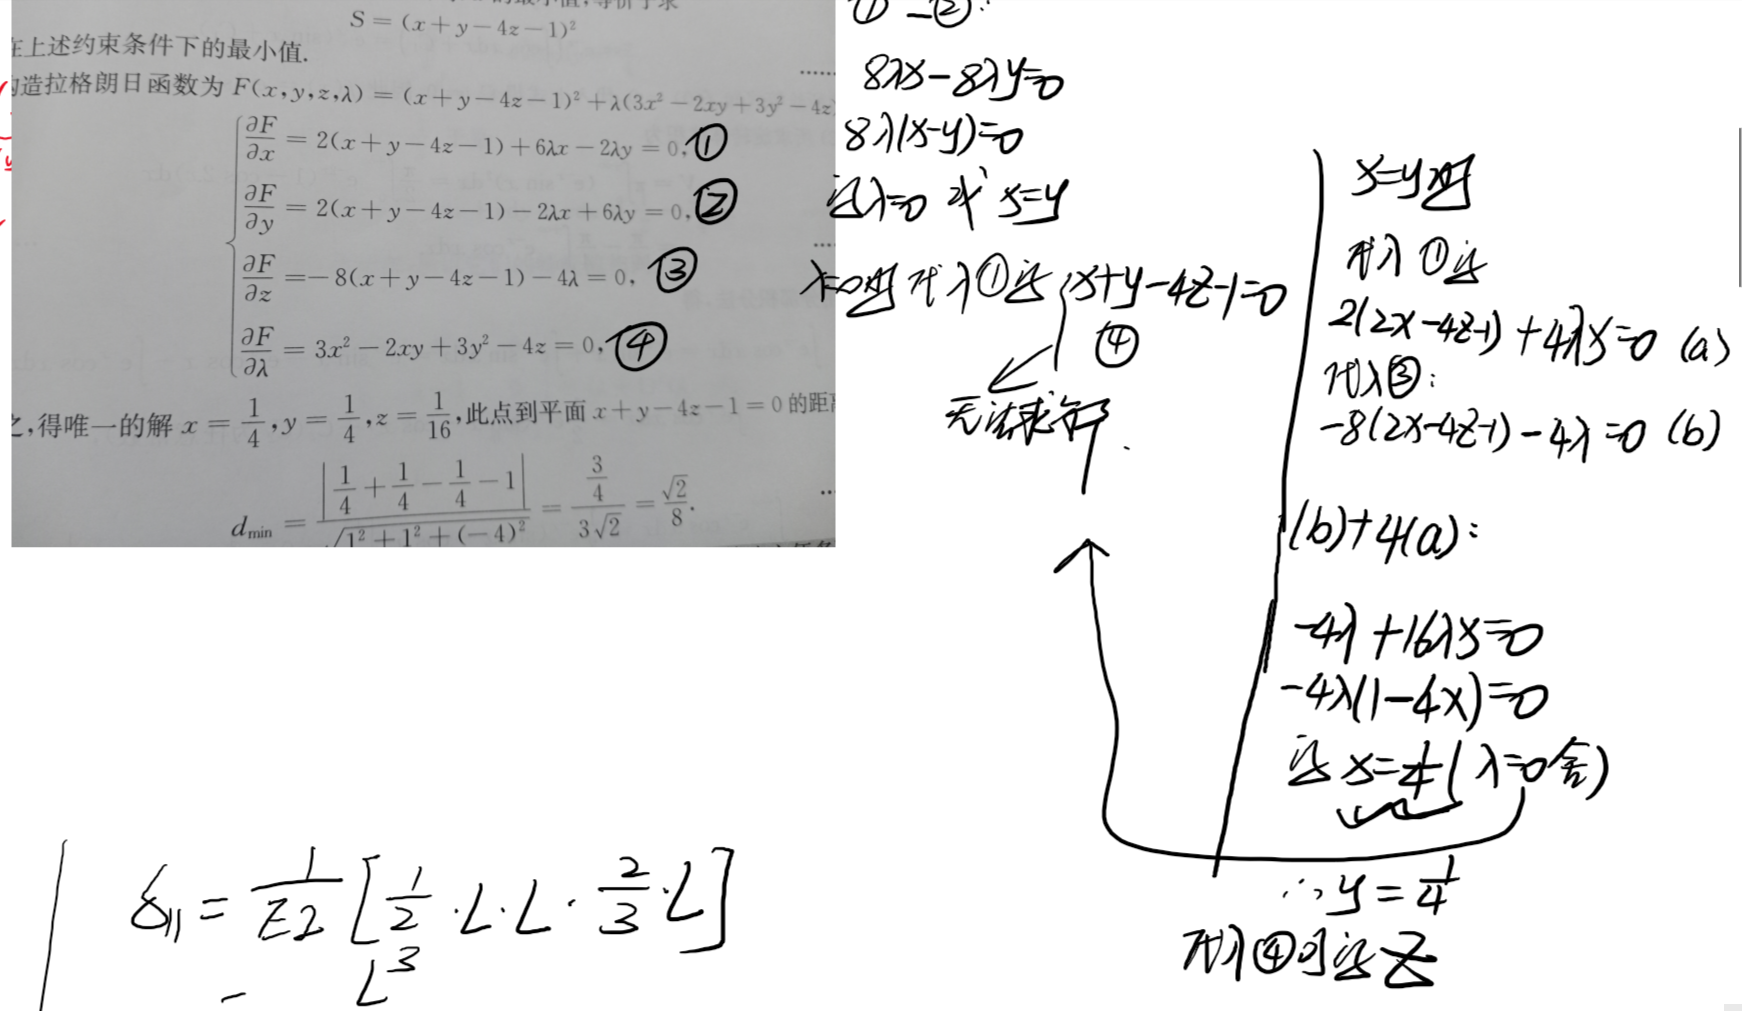 S = (x + y − 4z − 1)²
在上述约束条件下的最小值.
造拉格朗日函数为 F(x,y,z,λ) = (x + y − 4z − 1)² + λ(3x² − 2xy + 3y² − 4z
∂F/∂x = 2(x + y − 4z − 1) + 6λx − 2λy = 0, ①
∂F/∂y = 2(x + y − 4z − 1) − 2λx + 6λy = 0, ②
∂F/∂z = −8(x + y − 4z − 1) − 4λ = 0, ③
∂F/∂λ = 3x² − 2xy + 3y² − 4z = 0, ④
之,得唯一的解 x = 1/4, y = 1/4, z = 1/16, 此点到平面 x + y − 4z − 1 = 0 的距
d_min = |1/4 + 1/4 − 1/4 − 1| / √(1² + 1² + (−4)²) = (3/4)/(3√2) = √2/8.
① − ②:
8λx − 8λy = 0
8λ(x−y) = 0
得λ=0 或 x=y
λ=0时 代入①得 x+y−4z−1=0
④
无法求解
x=y时
代入①得
2(2x−4z−1) + 4λx = 0 (a)
代入③:
−8(2x−4z−1) − 4λ = 0 (b)
(b)+4(a):
−4λ + 16λx = 0
−4λ(1−4x) = 0
得 x = 1/4 (λ=0舍)
∴ y = 1/4
代入④可得 z
δ₁₁ = 1/EI [1/2 · L · L · 2/3 · L]
= L³